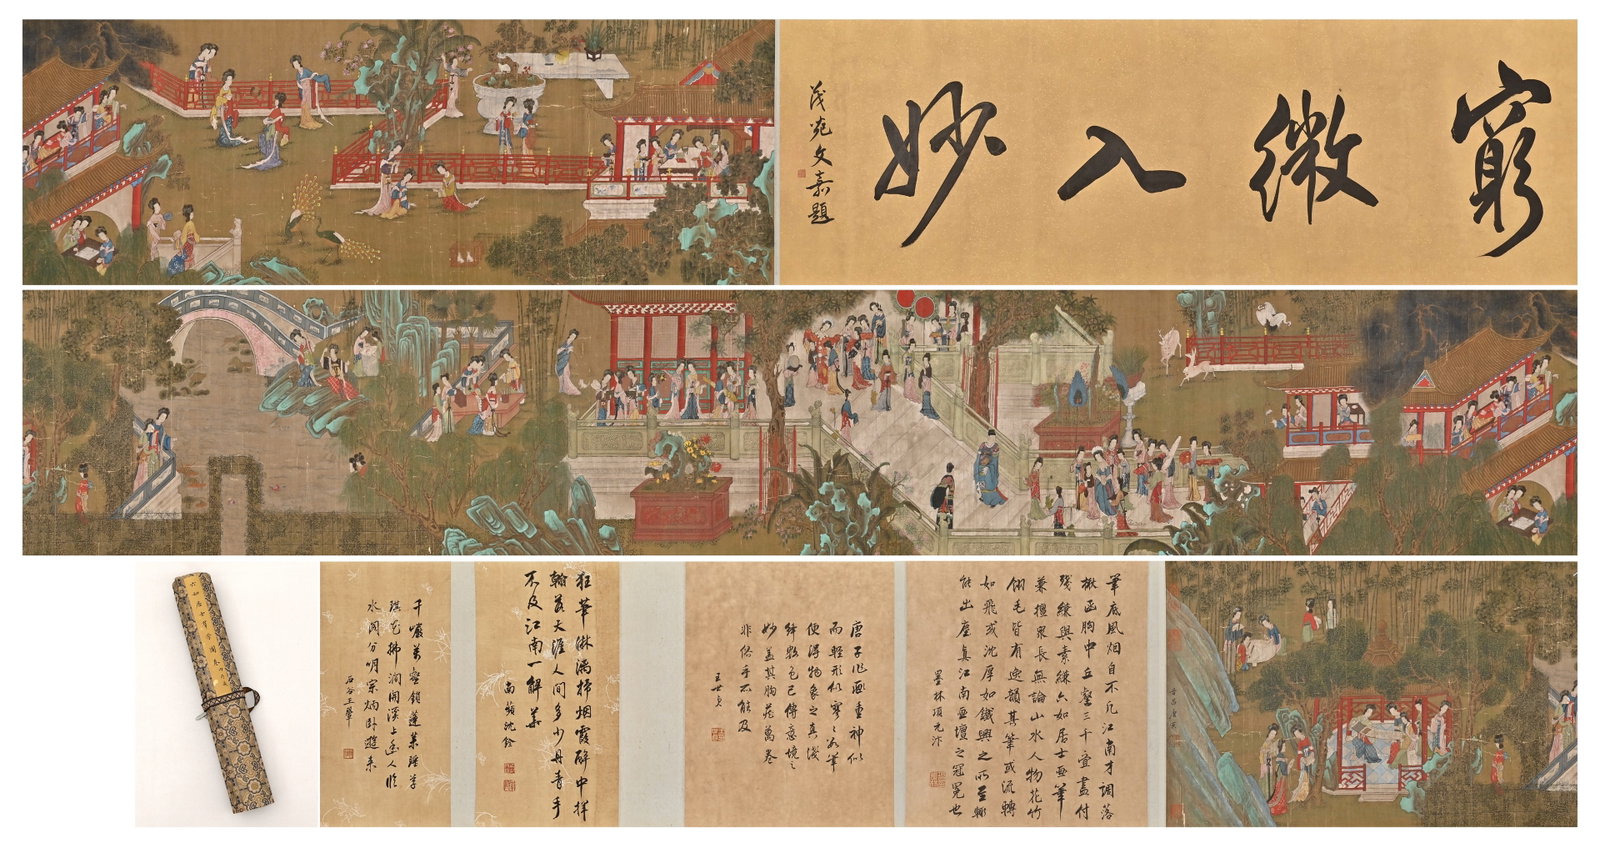 窮微入妙
茂苑文嘉題
筆底風烟自不凡江南才調落
楸函胸中丘壑三千壹盡付
殘縑與素練六如居士畫筆
兼擅眾長無論山水人物花竹
翎毛皆有逸韻其筆或流轉
如飛或沈厚如鐵興之所至輒
能出塵真江南畫壇之冠冕也
墨林項元汴
唐子作画重神似
而輕形似寥寥數筆
便得物象之真淺
絳數色已傳意境之
妙蓋其胸藏萬卷
非俗手不能及
王世貞
狂華淋漓掃烟霞醉中揮
翰落天涯人間多少丹青手
不及江南一解華
南蘋沈銓
千巖萬壑鎖蓬萊瑤草
琪花拂澗開溪上幽人臨
水閣分明宗炳臥遊來
石谷王翬